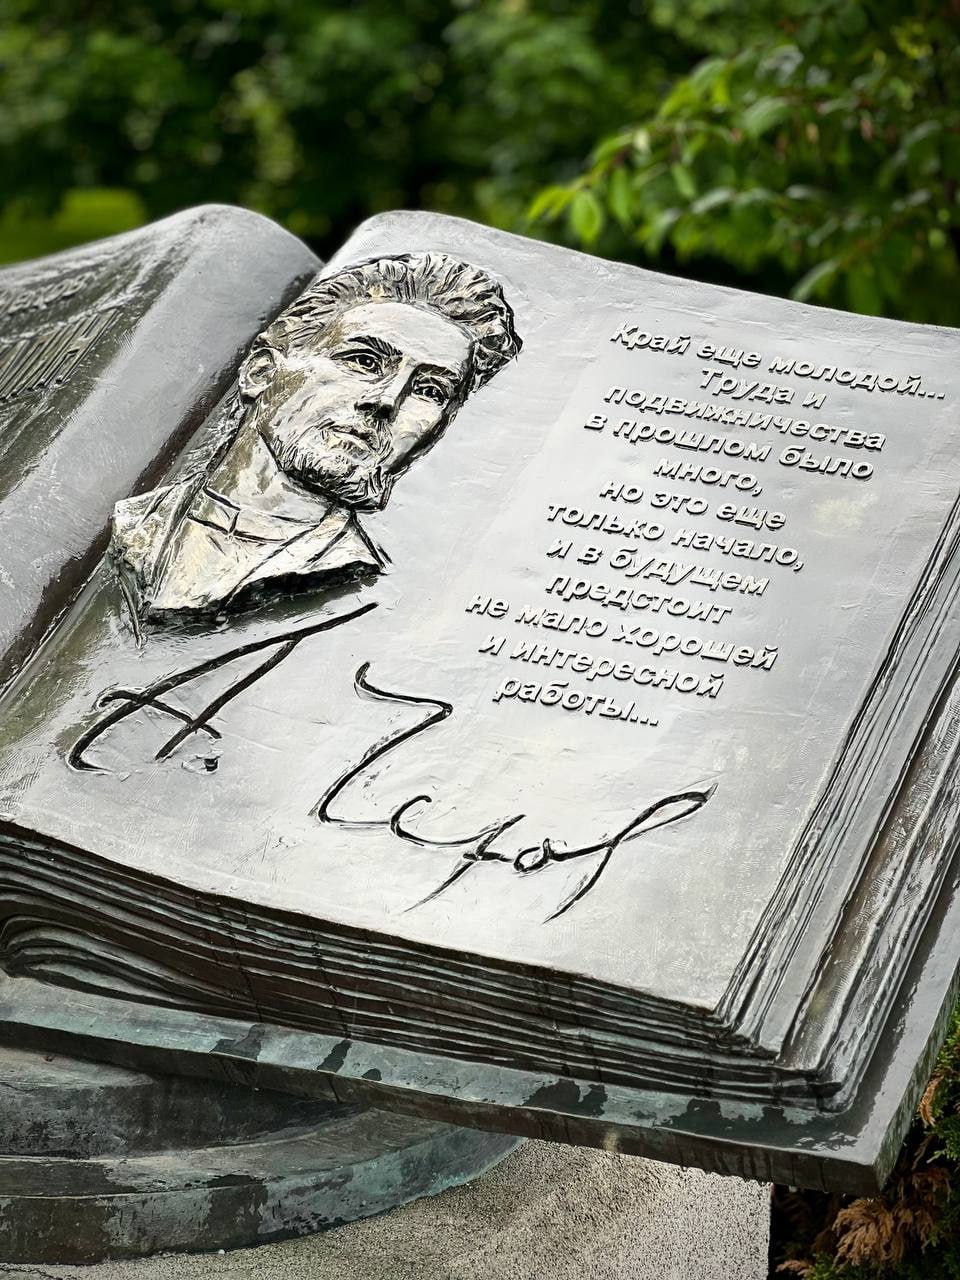 Край еще молодой...
Труда и
подвижничества
в прошлом было
много,
но это еще
только начало,
и в будущем
предстоит
не мало хорошей
и интересной
работы...
А. Чехов